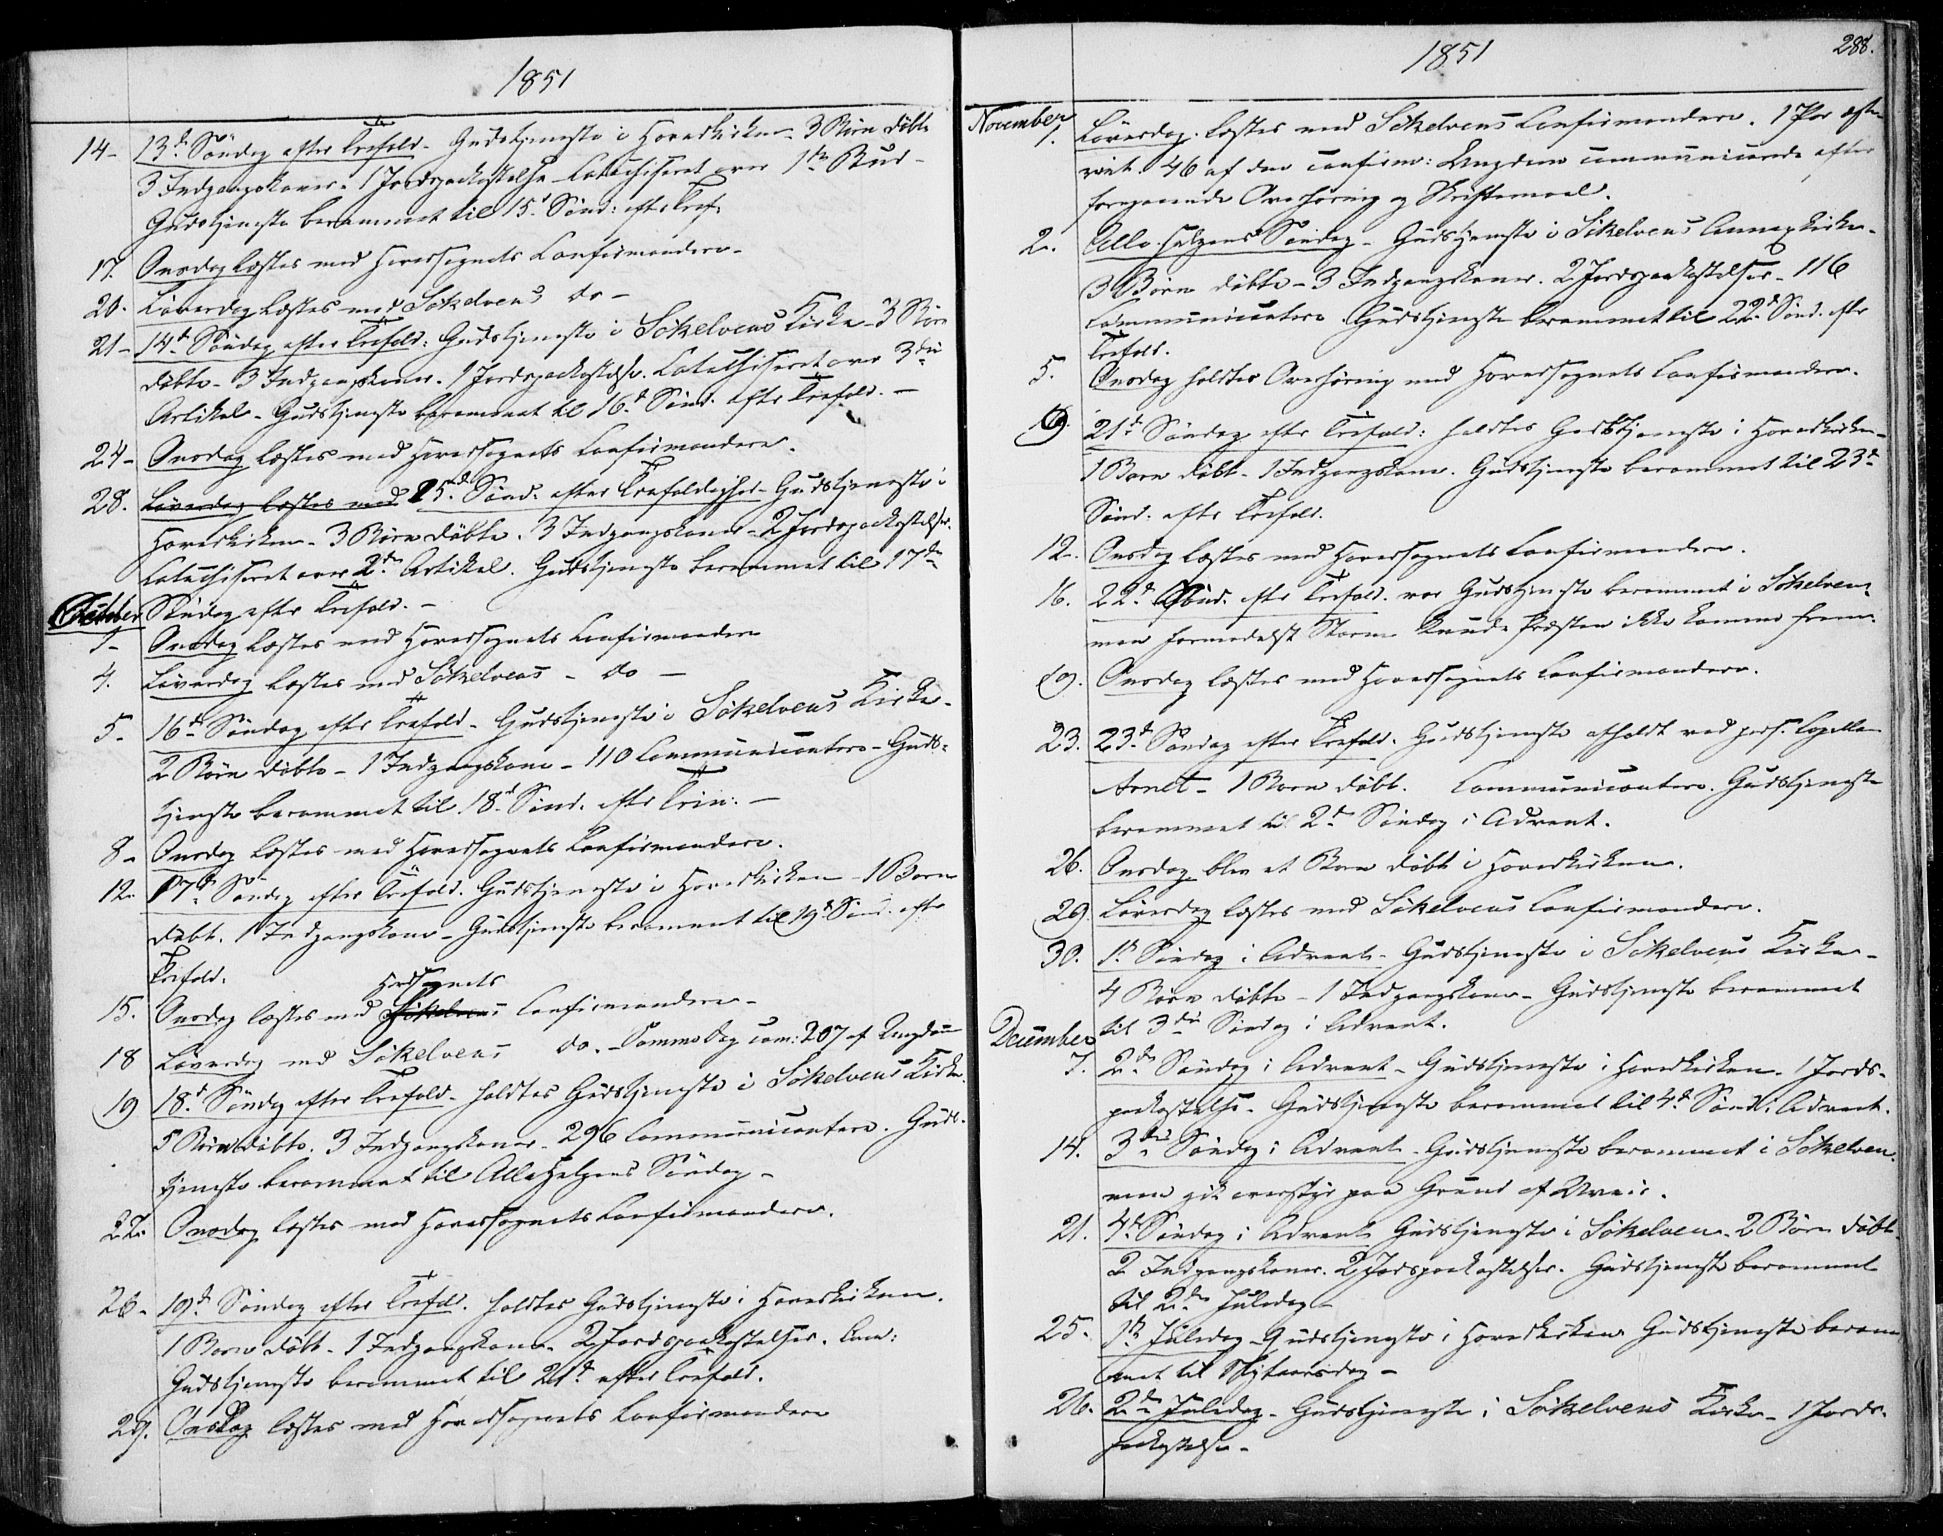 1851
14- 13d Søndag efter Trefold - Gudstjeneste i Hovedkirken - 3 Børn døbte
3 Indgangskoner - 1 Jordspaakastelse Catechiseret over 1ste Bud -
Gudstjeneste berammet til 15d Sønd: efter Tref.
17. Onsdag læstes med Hovedsognets Confirmander -
20. Løverdag læstes med Søkelvens do -
21- 14d Søndag efter Trefold: Gudstjeneste i Søkelvens Kirke - 3 Børn
døbte - 3 Indgangskoner. 1 Jordspaakastelse. Catechiseret over 3die
Artikel - Gudstjeneste berammet til 16d Sønd. efter Trefold. -
24- Onsdag læstes med Hovedsognets Confirmander.
28. Løverdag læstes med 15d Sønd. efter Trefoldighed - Gudstjeneste i
Hovedkirken - 3 Børn døbte. 3 Indgangskoner - 2 Jordspaakastelser.
Catechiseret over 2den Artikel. Gudstjeneste berammet til 17de
October Søndag efter Trefold. -
1- Onsdag læstes med Hovedsognets Confirmander
4. Løverdag læstes med Søkelvens - do -
5- 16d Søndag efter Trefold - Gudstjeneste i Søkelvens Kirke -
2 Børn døbte - 1 Indgangskone - 110 Communicantere - Guds-
tjeneste berammet til 18d Sønd. efter Trin: -
8- Onsdag læstes med Hovedsognets Confirmander.
12. 17de Søndag efter Trefold. Gudstjeneste i Hovedkirken - 1 Barn
døbt. 1 Indgangskone - Gudstjeneste berammet til 19d Sønd. efter
Trefold.
Hvdsognets
15. Onsdag læstes med Søkelvens Confirmander -
18 Løverdag med Søkelvens do. - Samme Dag com: 207 af Ungdom
19 18d Søndag efter Trefold - holdtes Gudstjeneste i Søkelvens Kirke.
5 Børn døbte. 3 Indgangskoner - 296 Communicantere. Guds-
tjeneste berammet til Alle Helgens Søndag -
22. Onsdag læstes med Hovedsognets Confirmander.
26- 19d Søndag efter Trefold. holdtes Gudstjeneste i Hovedkirken.
1 Barn døbt - 1 Indgangskone - 2 Jordspaakastelser.
Gudstjeneste berammet til 21d efter Trefold.
29. Onsdag læstes med Hovedsognets Confirmander
1851
288.
November
1. Løverdag - læstes med Søkelvens Confirmander. 1 Par
46 af den confirm: Ungdom communicerede efter
foregaaende Overhøring og Skriftemaal.
2. Alle Helgens Søndag - Gudstjeneste i Søkelvens Annexkirke -
3 Børn døbte - 3 Indgangskoner. 2 Jordspaakastelser - 116
Communicantere. Gudstjeneste berammet til 22d Sønd. efter
Trefold.
5. Onsdag holdtes Overhøring med Hovedsognets Confirmander.
9 21d Søndag efter Trefold: holdtes Gudstjeneste i Hovedkirken -
1 Barn døbt - 1 Indgangskone. Gudstjeneste berammet til 23de
Sønd. efter Trefold.
12. Onsdag læstes med Hovedsognets Confirmander.
16. 22d Sønd. efter Trefold. var Gudstjeneste berammet i Søkelven,
men formedelst Storm kunde Præsten ikke komme frem.
19. Onsdag læstes med Hovedsognets Confirmander.
23. 23d Søndag efter Trefold. Gudstjeneste afholdt ved pers. Capellan
- 1 Barn døbt. Communicantere. Gudstjeneste
berammet til 2d Søndag i Advent.
26. Onsdag blev et Barn døbt i Hovedkirken.
29. Løverdag læstes med Søkelvens Confirmander.
30. 1st Søndag i Advent - Gudstjeneste i Søkelvens Kirke -
4 Børn døbte - 1 Indgangskone - Gudstjeneste berammet
til 3die Søndag i Advent.
December
7. 2den Søndag i Advent - Gudstjeneste i Hovedkirken - 1 Jords-
paakastelse - Gudstjeneste berammet til 4d Sønd. i Advent.
14. 3die Søndag i Advent - Gudstjeneste berammet i Søkelven
men gik overstyr paa Grund af Uveir.
21. 4d Søndag i Advent Gudstjeneste i Søkelven - 2 Børn døbt
2 Indgangskoner. 2 Jordspaakastelser. Gudstjeneste berammet
til 2den Juledag -
25. 1ste Juledag - Gudstjeneste i Hovedkirken Gudstjeneste beram-
met til Nytaarsdag -
26. 2den Juledag - Gudstjeneste i Søkelvens Kirke - 1 Jords-
paakastelse -